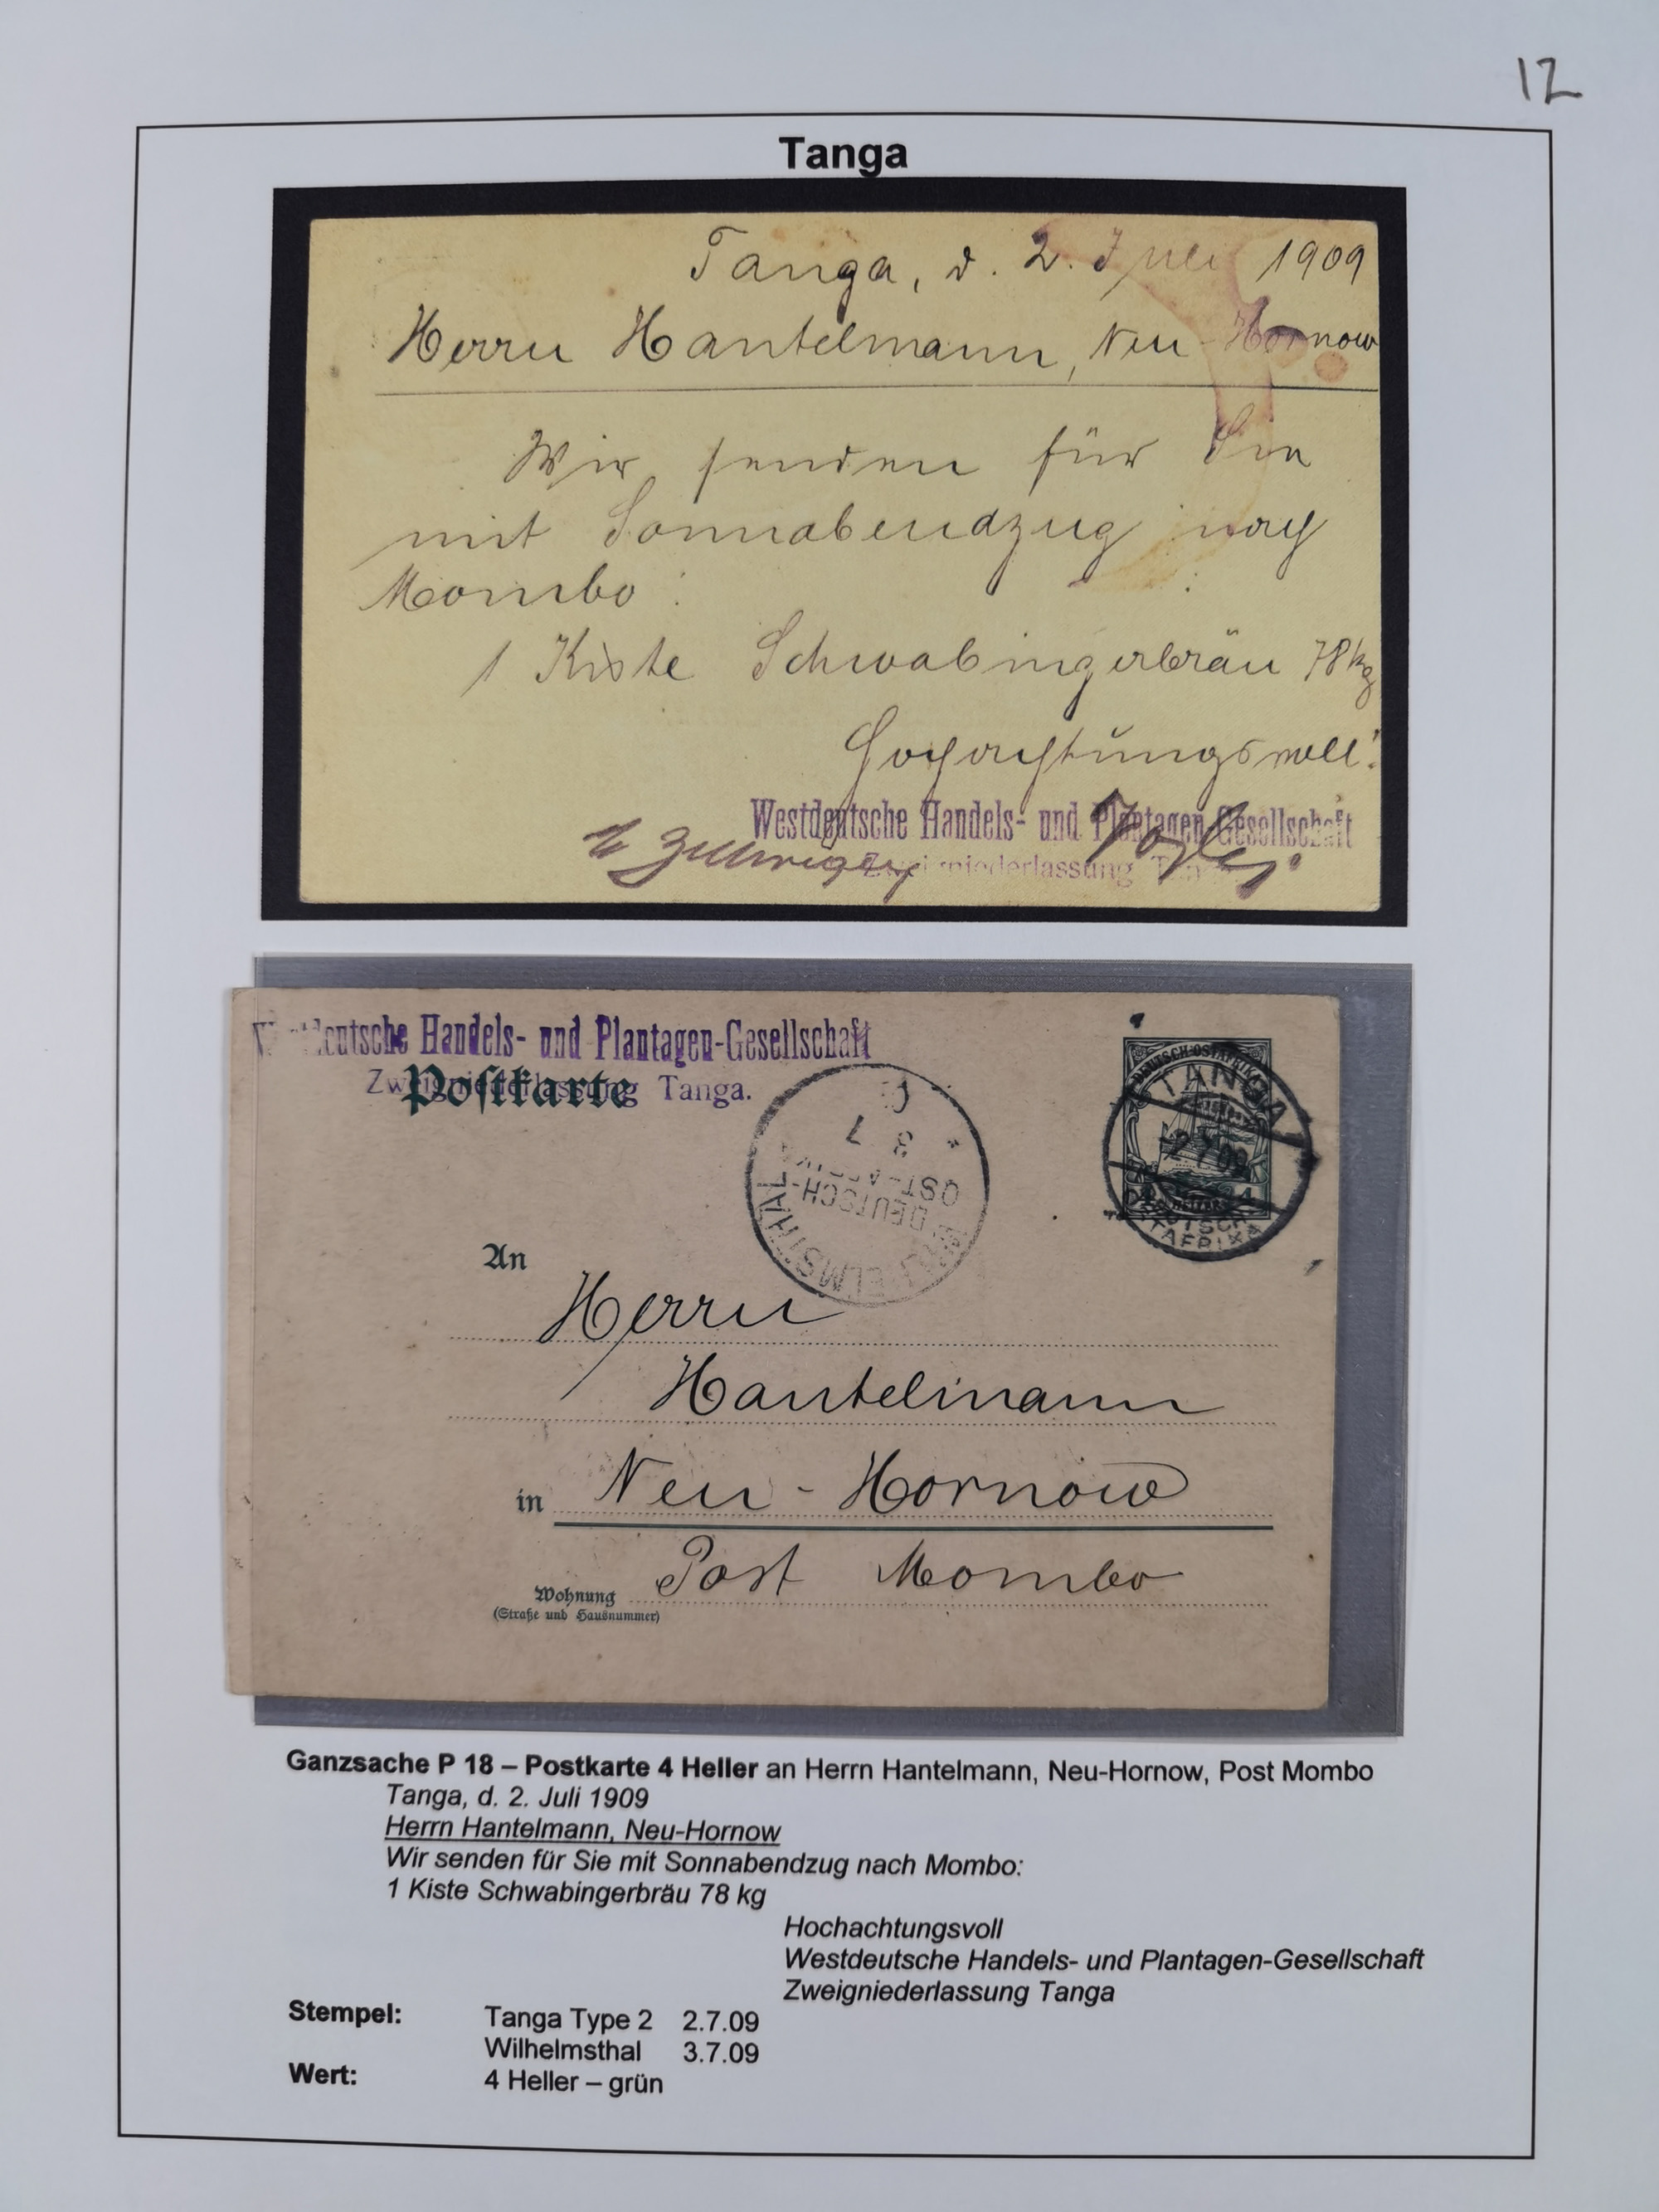 12
Tanga
Tanga, d. 2. Juli 1909
Herrn Hantelmann, Neu-Hornow
Wir senden für Sie
mit Sonnabendzug nach
Mombo:
1 Kiste Schwabingerbräu 78 kg
Hochachtungsvoll!
Westdeutsche Handels- und Plantagen Gesellschaft
Zweigniederlassung
Westdeutsche Handels- und Plantagen-Gesellschaft
Zweigniederlassung Tanga.
Postkarte
WILHELMSTHAL
DEUTSCH-
OST-AFRIKA
3 7
DEUTSCH-OSTAFRIKA
4 HELLER 4
TANGA
-2.7.09
DEUTSCH-
OSTAFRIKA
An
Herrn
Hantelmann
in Neu-Hornow
Post Mombo
Wohnung
(Straße und Hausnummer)
Ganzsache P 18 – Postkarte 4 Heller an Herrn Hantelmann, Neu-Hornow, Post Mombo
Tanga, d. 2. Juli 1909
Herrn Hantelmann, Neu-Hornow
Wir senden für Sie mit Sonnabendzug nach Mombo:
1 Kiste Schwabingerbräu 78 kg
Hochachtungsvoll
Westdeutsche Handels- und Plantagen-Gesellschaft
Zweigniederlassung Tanga
Stempel: Tanga Type 2 2.7.09
Wilhelmsthal 3.7.09
Wert: 4 Heller – grün